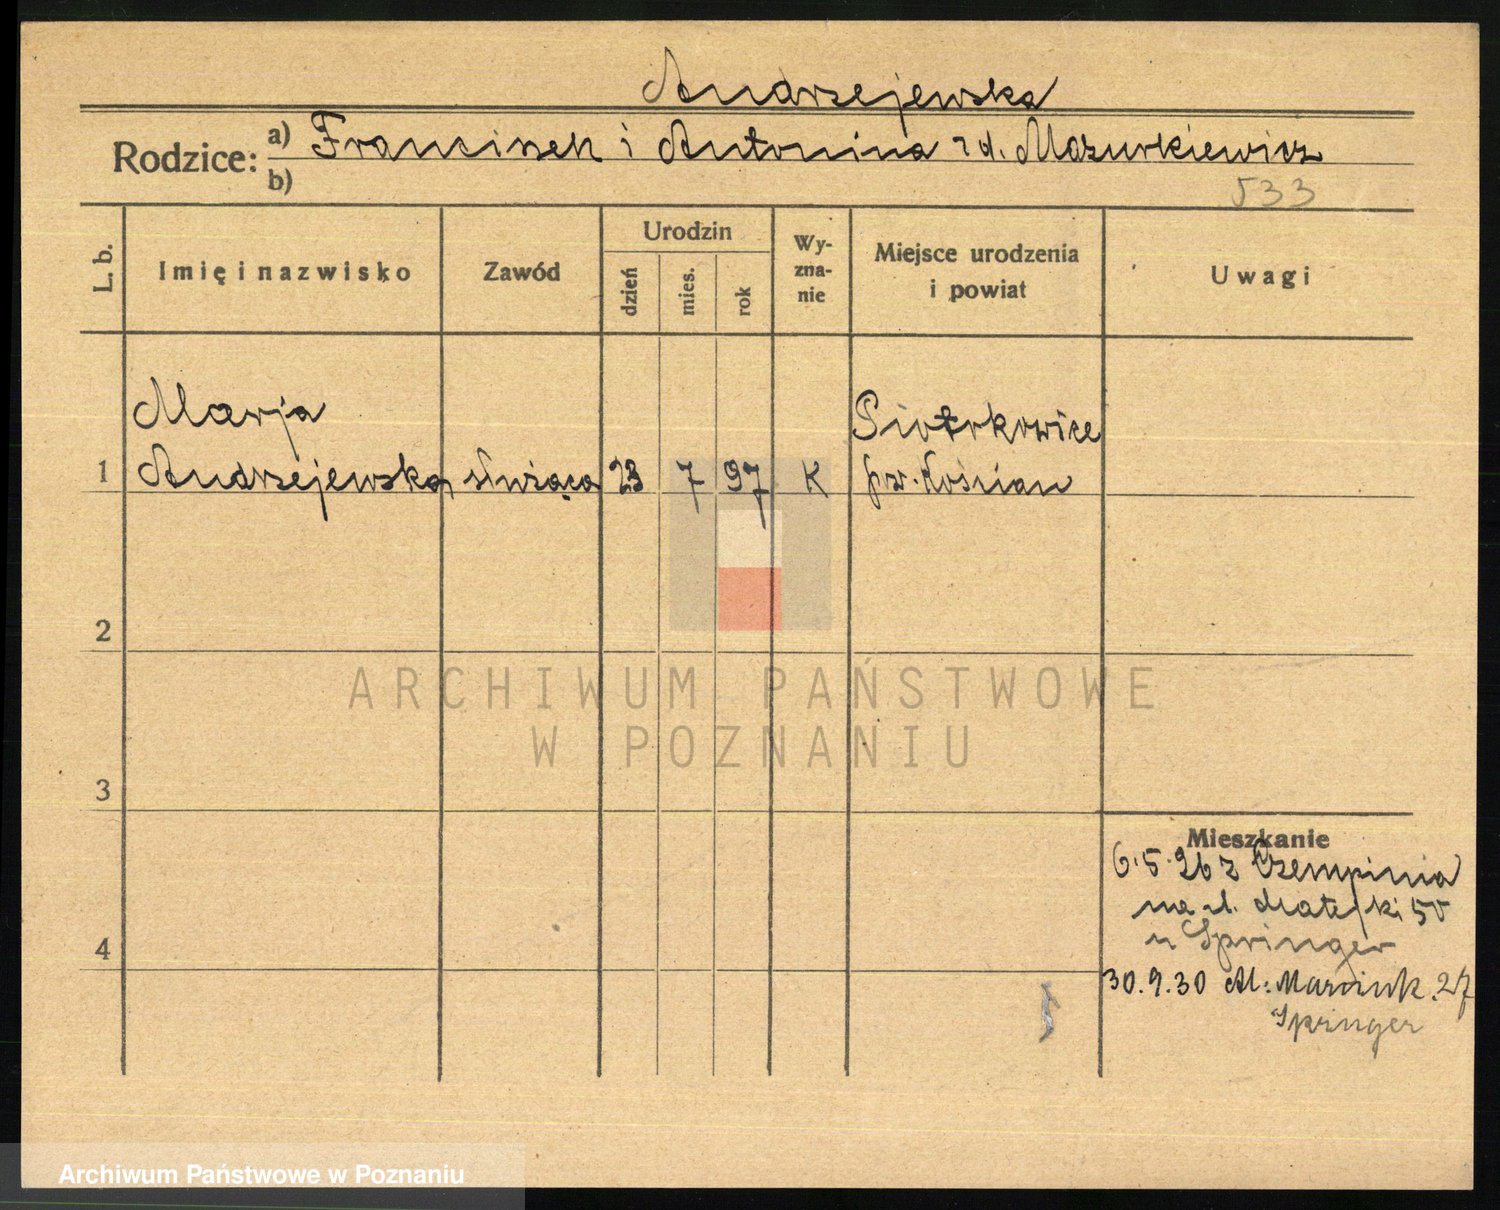 Andrzejewska
Rodzice: a) Franciszek i Antonina z d. Mazurkiewicz
b)
533
L. b.
Imię i nazwisko
Zawód
Urodzin
dzień
mies.
rok
Wy-
zna-
nie
Miejsce urodzenia
i powiat
Uwagi
Marja
Piotrkowice
1 Andrzejewska służąca 23 7 97 K pw. Kościan
2
ARCHIWUM PAŃSTWOWE
W POZNANIU
3
Mieszkanie
6.5.26 z Czempinia
na ul. Matejki 50
u Springer
4
30.9.30 Al. Marcink. 27
Springer
Archiwum Państwowe w Poznaniu